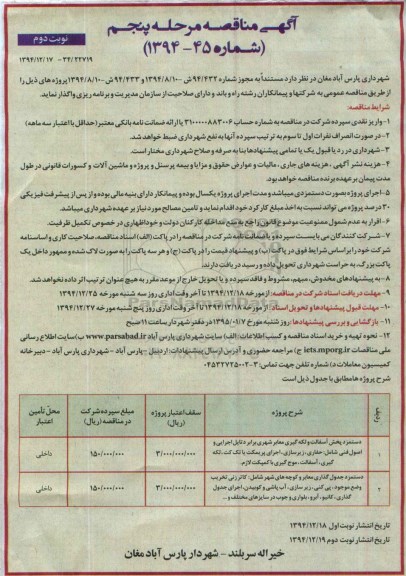 آگهی مناقصه مرحله پنجم
(شماره ۴۵- ۱۳۹۴)
نوبت دوم
۳۴/۲۲۷۱۹ - ۱۳۹۴/۱۲/۱۷
شهرداری پارس آباد مغان در نظر دارد مستنداً به مجوز شماره ۹۴/۴۳۲ ش -۱۳۹۴/۸/۱۰ و ۹۴/۴۳۳ش-۱۳۹۴/۸/۱۰ پروژه های ذیل را
از طریق مناقصه عمومی به شرکتها و پیمانکاران رشته راه و باند و دارای صلاحیت از سازمان مدیریت و برنامه ریزی واگذار نماید.
شرایط مناقصه:
۱- واریز نقدی سپرده شرکت در مناقصه به شماره حساب ۳۱۰۰۰۰۰۸۸۳۰۰۶ یا ارائه ضمانت نامه بانکی معتبر (حداقل با اعتبار سه ماهه)
۲- در صورت انصراف نفرات اول تا سوم به ترتیب سپرده آنها به نفع شهرداری ضبط خواهد شد.
۳- شهرداری در رد یا قبول یک یا تمامی پیشنهادها بنا به صرفه و صلاح شهرداری مختار است.
۴- هزینه نشر آگهی، هزینه های جاری، مالیات و عوارض حقوق و مزایا و بیمه پرسنل و پروژه و ماشین آلات و کسورات قانونی در طول
مدت پیمان بر عهده برنده مناقصه خواهد بود.
۵- اجرای پروژه بصورت دستمزدی میباشد و مدت اجرای پروژه یکسال بوده و پیمانکار دارای بنیه مالی بوده و از پس از پیشرفت فیزیکی
۳۰ درصد پروژه می تواند نسبت به اخذ مبلغ کارکرد خود اقدام نماید و تامین مصالح مورد نیاز بر عهده شهرداری میباشد.
۶- اقرار به عدم شمول ممنوعیت موضوع قانون راجع به منع مداخله کارکنان دولت و خوداظهاری در خصوص تکمیل ظرفیت.
۷- شرکت کنندگان می بایست سپرده و یا ضمانت نامه شرکت در مناقصه را در پاکت (الف) اسناد مناقصه، صلاحیت کاری و اساسنامه
شرکت خود را بر اساس شرایط فوق در پاکت (ب) و پیشنهاد قیمت را در پاکت (ج) و هر سه پاکت را به صورت لاک شده و ممهور داخل یک
پاکت بزرگ، به حراست شهرداری تحویل داده و رسید دریافت دارند.
۸- به پیشنهادهای مخدوش، مبهم، مشروط و فاقد سپرده و یا تحویل خارج از موعد مقرر به هیچ عنوان ترتیب اثر داده نخواهد شد.
۹- مهلت دریافت اسناد شرکت در مناقصه: از مورخه ۱۳۹۴/۱۲/۱۸ تا آخر وقت اداری روز سه شنبه مورخه ۱۳۹۴/۱۲/۲۵
۱۰- مهلت قبول پیشنهادها و تحویل اسناد: از مورخه ۱۳۹۴/۱۲/۱۸ تا آخر وقت اداری روز پنج شنبه مورخه ۱۳۹۴/۱۲/۲۷
۱۱- بازگشایی و بررسی پیشنهادها: روز شنبه مورخ ۱۳۹۵/۰۱/۷ در دفتر شهردار ساعت ۱۱ صبح
۱۲- نحوه تهیه و خرید اسناد مناقصه و کسب اطلاعات: الف) سایت شهرداری پارس آباد www.parsabad.ir ب) سایت اطلاع رسانی
ملی مناقصات iets.mporg.ir ج) مراجعه حضوری و آدرس ارسال پیشنهادات: اردبیل - پارس آباد - شهرداری پارس آباد - دبیرخانه
کمیسیون معاملات د) شماره تلفن جهت تماس: ۳-۰۴۵۳۲۷۲۵۰۰۲
شرح پروژه ها مطابق با جدول ذیل است
ردیف
شرح پروژه
سقف اعتبار پروژه (ریال)
مبلغ سپرده شرکت در مناقصه (ریال)
محل تأمین اعتبار
۱
دستمزد پخش آسفالت و لکه گیری معابر شهری برابر دلایل اجرایی و
اصول فنی شامل: حفاری، زیرسازی، اجرای پریمکت یا تک کت، لکه
گیری، آسفالت، موج گیری با کمپکت لازم
۳/۰۰۰/۰۰۰/۰۰۰
۱۵۰/۰۰۰/۰۰۰
داخلی
۲
دستمزد جدول گذاری معابر و کوچه های شهر شامل: کاتر زنی تخریب
وضع موجود، پی کنی، زیر سازی، آب پاشی و کوبیدن، اجرای جدول
گذاری، کانیو، آبرو، بلواری و جوب در سایزهای مختلف و...
۳/۰۰۰/۰۰۰/۰۰۰
۱۵۰/۰۰۰/۰۰۰
داخلی
تاریخ انتشار نوبت اول ۱۳۹۴/۱۲/۱۸
تاریخ انتشار نوبت دوم ۱۳۹۴/۱۲/۱۹
خیراله سربلند - شهردار پارس آباد مغان